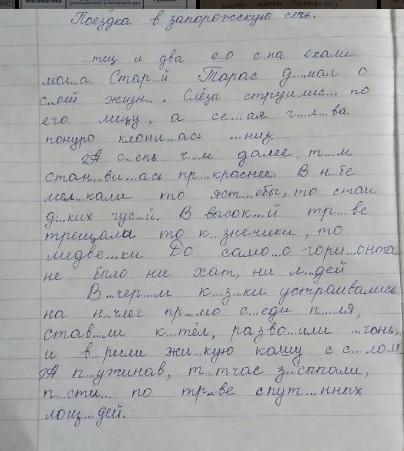 Поездка в запорожскую сечь.
...тец и два е...о с...на ехали
мол...а. Стар...й Тарас д...мал о
с...оей жизн... . Слёзы струились... по
его лицу, а се...ая г...л...ва
понуро клони...ась ...низ.
А с...епь ч...м далее, т...м
стан...ви...ась пр...краснее. В н...бе
мел...кали то яст...ебы, то стаи
д...ких гус...й. В высок...й тр...ве
трещали то к...знечики, то
медве...ки. До само...о гори...онта
не было ни хат, ни л...дей
В...чер...м к...з...ки устраивались
на н...члег пр...мо с...еди п...ля,
став...ли к...тёл, разво...или ...гонь,
и в...рили жи...кую кашу с с...лом
А п...ужинав, т...тчас з...сыпали,
п...сти... по тр...ве спут...нных
лош...дей.